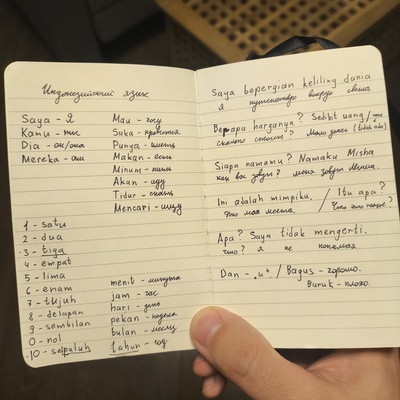 Индонезийский язык
Saya - я
Kamu - ты
Dia - он/она
Mereka - они
Mau - хочу
Suka - нравится
Punya - иметь
Makan - есть
Minum - пить
Akan - иду
Tidur - спать
Mencari - ищу
1 - satu
2 - dua
3 - tiga
4 - empat
5 - lima
6 - enam
7 - tujuh
8 - delapan
9 - sembilan
0 - nol
10 - sepuluh
menit - минута
jam - час
hari - день
pekan - неделя
bulan - месяц
tahun - год
Saya bepergian keliling dunia
я путешествую вокруг света
Berapa harganya? Sedikit uang/
сколько стоит? Мало денег
Siapa namamu? Namaku Misha
как вас зовут? меня зовут Миша.
Ini adalah mimpiku. / Itu apa?
Это моя мечта. / Что это такое?
Apa? Saya tidak mengerti.
что? я не понимаю
Dan - "и" / Bagus - хорошо.
Buruk - плохо.